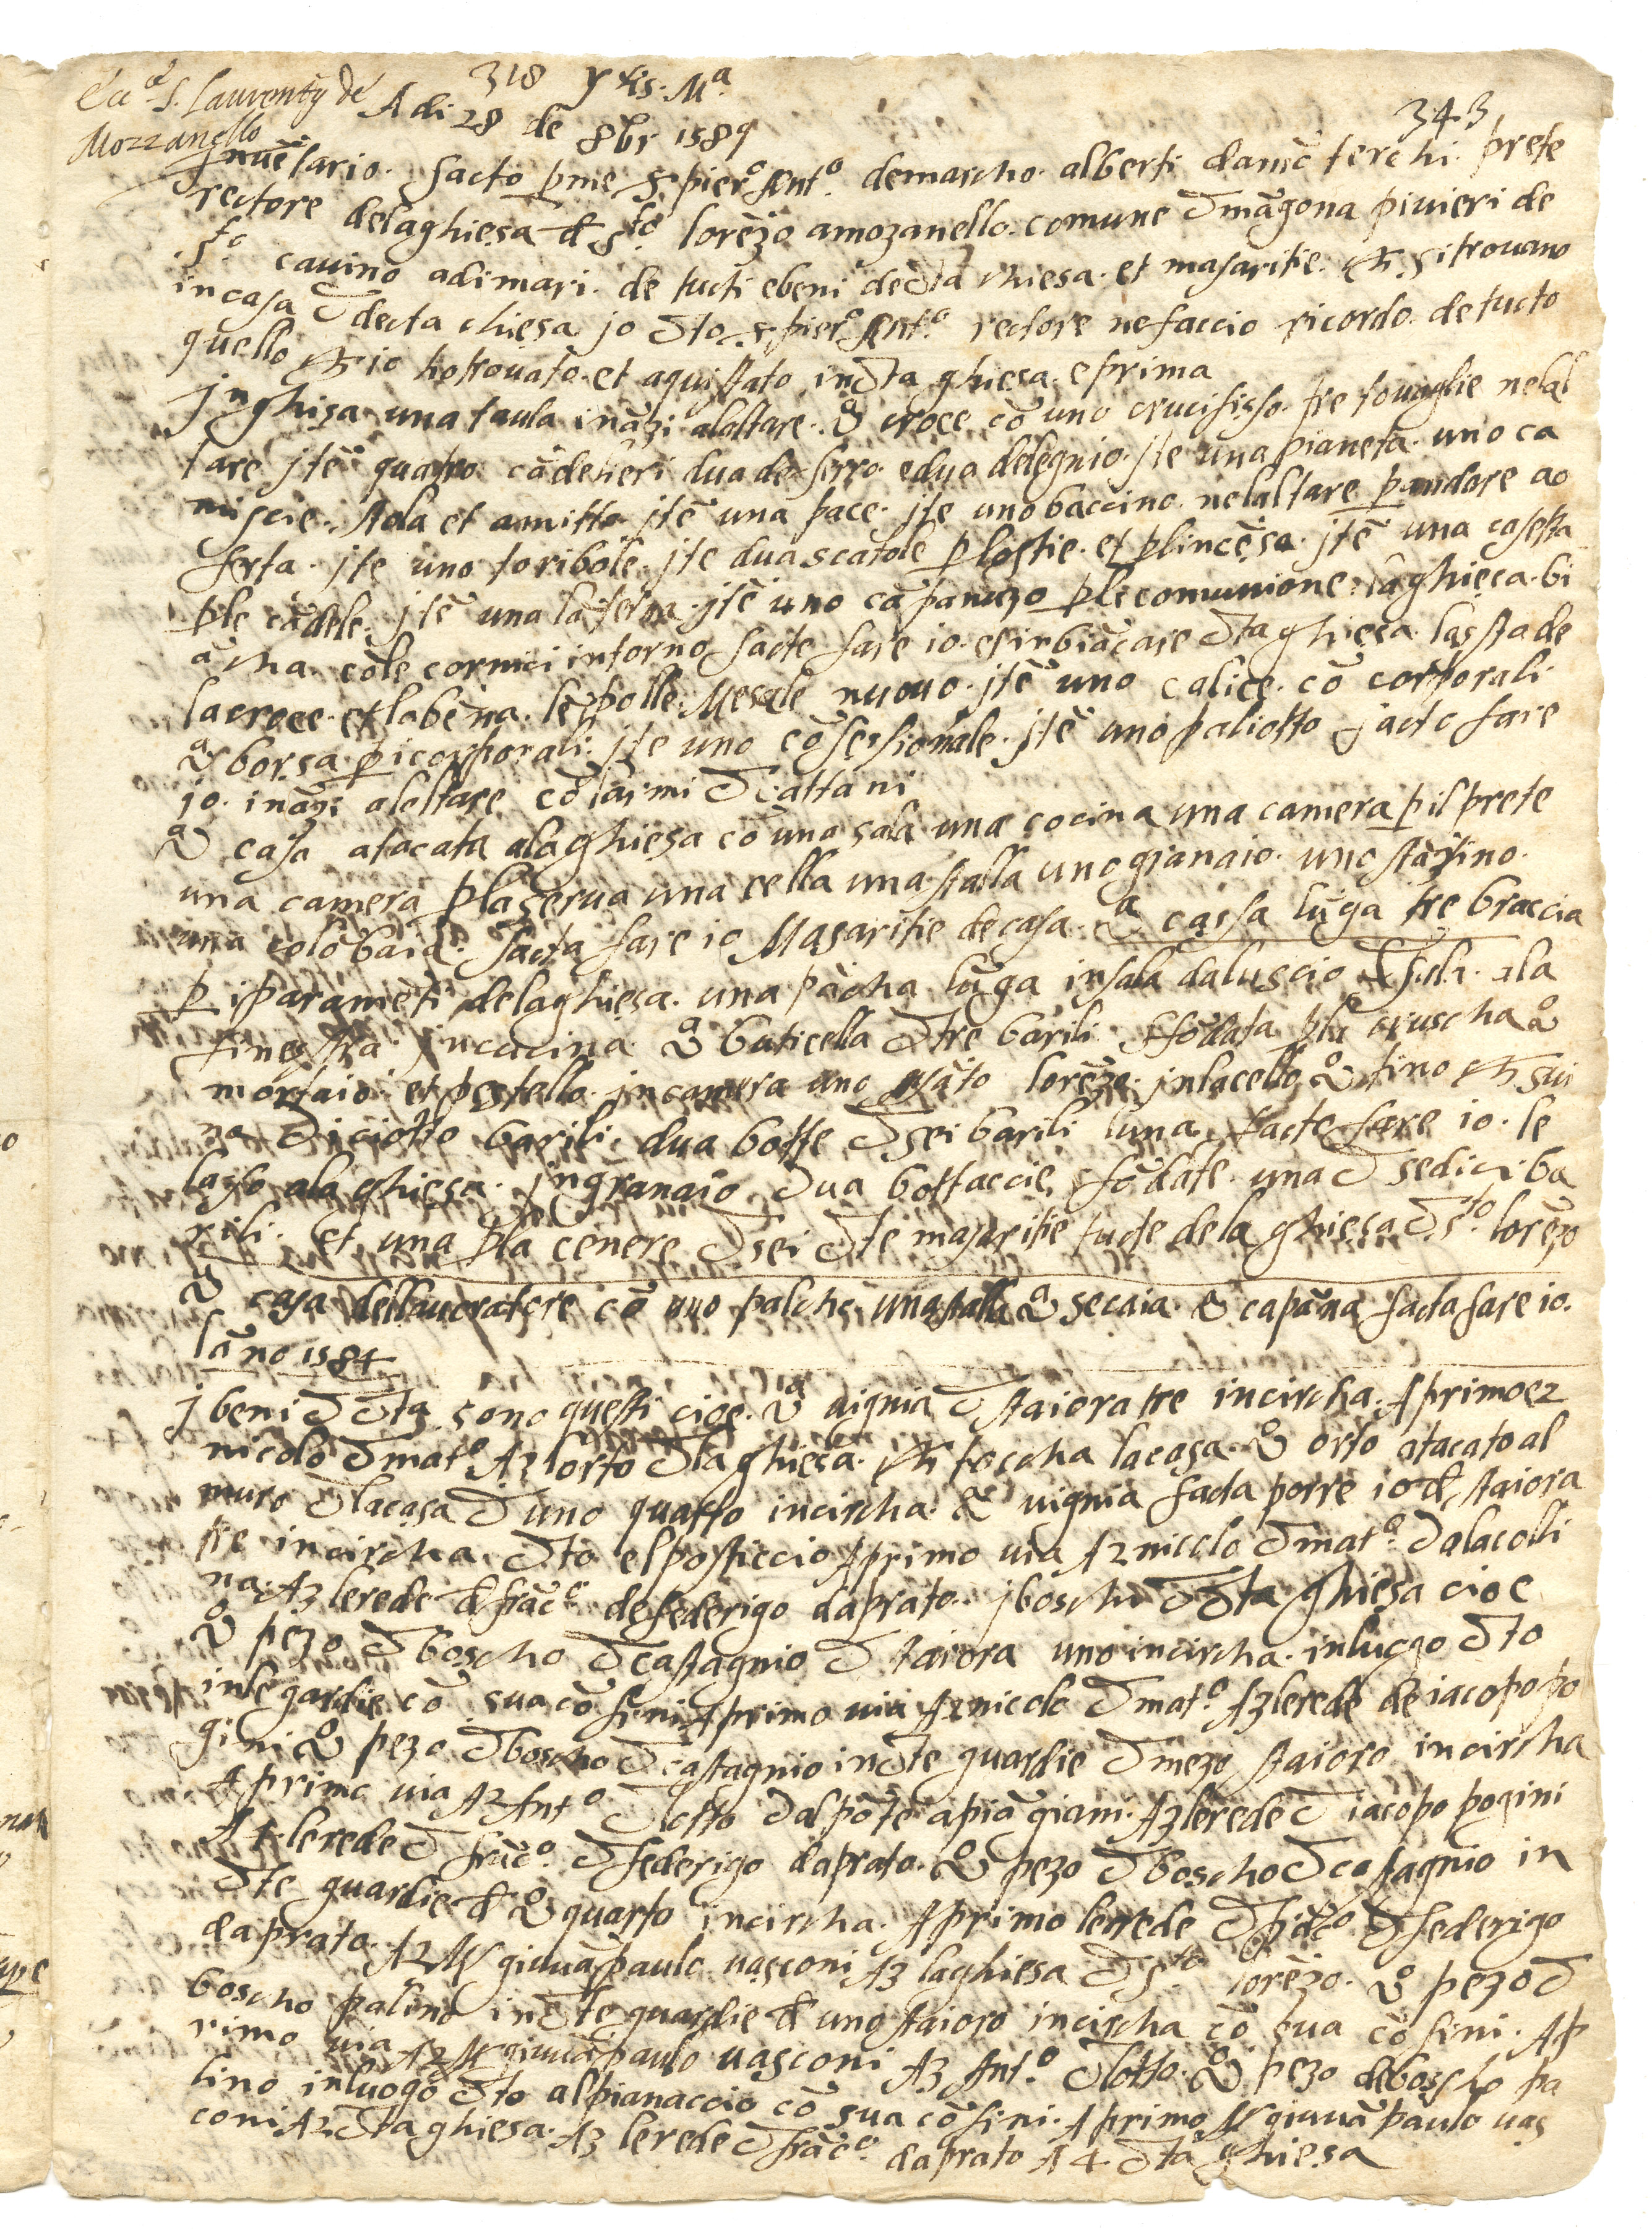 318 yħs. Mª.
343
Ecc.ª S. Laurentij de
Mozzanello
Adi 28 de 8br 1589
Jnuētario. facto p me s. pierº Antº. demarcho. alberti da mōterchi. prete
rectore delaghiesa d sto lorēzo amozanello. comune d māgona piuieri de
sto cauino adimari. de tucti ebeni decta chiesa. et masaritie. ch si trouano
incasa d decta chiesa jo dto s. pierº Antº. rectore nefaccio ricordo. detucto
quello ch io hotrouato. et aquistato indta ghiesa. eprima
Jnghisa una taula ināzi alaltare. 1ª croce cō uno crucifisso. tre touaglie nelal
tare jtē quatro cādelieri dua de ferro edua delegnio. jtē una pianeta. uno ca
miscie. stola et amitto. jtē una pace. jtē uno baccino. nelaltare p andare ao
ferta. jte uno toribole. jte dua scatole p lostie. et p lincēso. jtē una casetta
ple cādele. jtē una lāterna. jtē uno cāpanuzo ple comunione. laghiesa. bi
ācha. cōle cornici intorno facte fare io. et inbiācare dta ghiesa. lasta de
lacroce. et labēna. le polle. Mesale nuouo. jtē uno calice. cō corporali
1ª borsa p icorporali. jte uno cōfessionale. jtē uno paliotto facto fare
jo. ināzi alaltare cō larmi d cattani
1ª casa atacata alaghiesa cō una sala una cocina una camera p il prete
una camera p laserua una cella una stalla uno granaio. uno stāzino.
una colōbaia. facta fare io Masaritie decasa. 1ª cassa lūga tre braccia
p iparamēti delaghiesa. una pācha lūga insala daluscio ala
finestra. jncucina 1ª buticella d tre barili sfōdata pla cruscha 1º
mortaio et pestello. incamera uno lorēzo. jnlacella 1º tino ch sui
na diciotto barili. dua botte d sei barili luna. facte fare io. le
lascio ala ghiesa. jngranaio dua bottaccie sfōdate una d sedici ba
rili. et una pla cenere d sei dte masaritie tucte dela ghiesa d sto. lorēzo
1ª casa dellauoratore cō uno palcho. una stalla 1ª secaia. 1ª capāna facta fare io.
lāno 1584
j beni d dta sono questi cioe. 1ª uignia d staiora tre incircha. A primo e 2
nicolo d matº A3 lorto dla ghiesa. ch toccha lacasa. 1º orto atacato al
muro dlacasa d uno quarto incircha. 1ª uignia facta porre io d staiora
tre incircha. dto elposticcio A primo uia A2 nicolo d matº. dalacolli
na. A3 lerede d frācº. defederigo daprato. j boschi d dta ghiesa cioe
1º pezo d boscho d castagnio d staiora uno incircha. inluogo dto
inle guardie cō sua cōfini A primo uia A2 nicolo d matº. A3 lerede de iacopo po
gini 1º pezo d boscho d castagnio in dte guardie d mezo staioro incircha
A primo uia A2 Antº d lotto dalpōte apiāgiani. A3 lerede d iacopo pogini
A4 lerede d frācº. d federigo daprato. 1º pezo d boscho d castagnio in
dte guardie d 1º quarto incircha. A primo lerede d frācº d federigo
daprato. A2 Mº giouāpaulo uasconi A3 laghiesa d sto lorēzo. 1º pezo d
boscho palino indte guardie d uno staioro incircha cō sua cōfini. A p
rimo uia A2 Mº giouāpaulo uasconi A3 Antº. dlotto. 1º pezo deboscho pa
lino inluogo dto alpianaccio cō sua cōfini. A primo Mº giouāpaulo uas
coni A2 dta ghiesa. A3 lerede d frācº. daprato A4 dta ghiesa